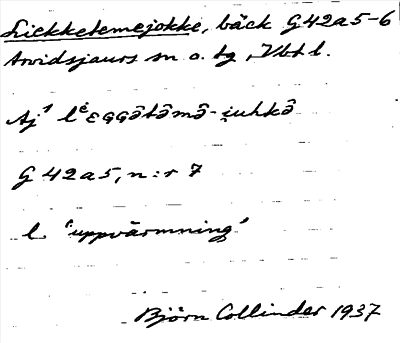 Liekketemejokke, bäck G42a5-6
Arvidsjaurs sn o. tg, Vbt l.
Aj¹ lᵉεGGâtâmâ-i̯uhkâ
G 42a5, n:r 7
l. 'uppvärmning'
Björn Collinder 1937